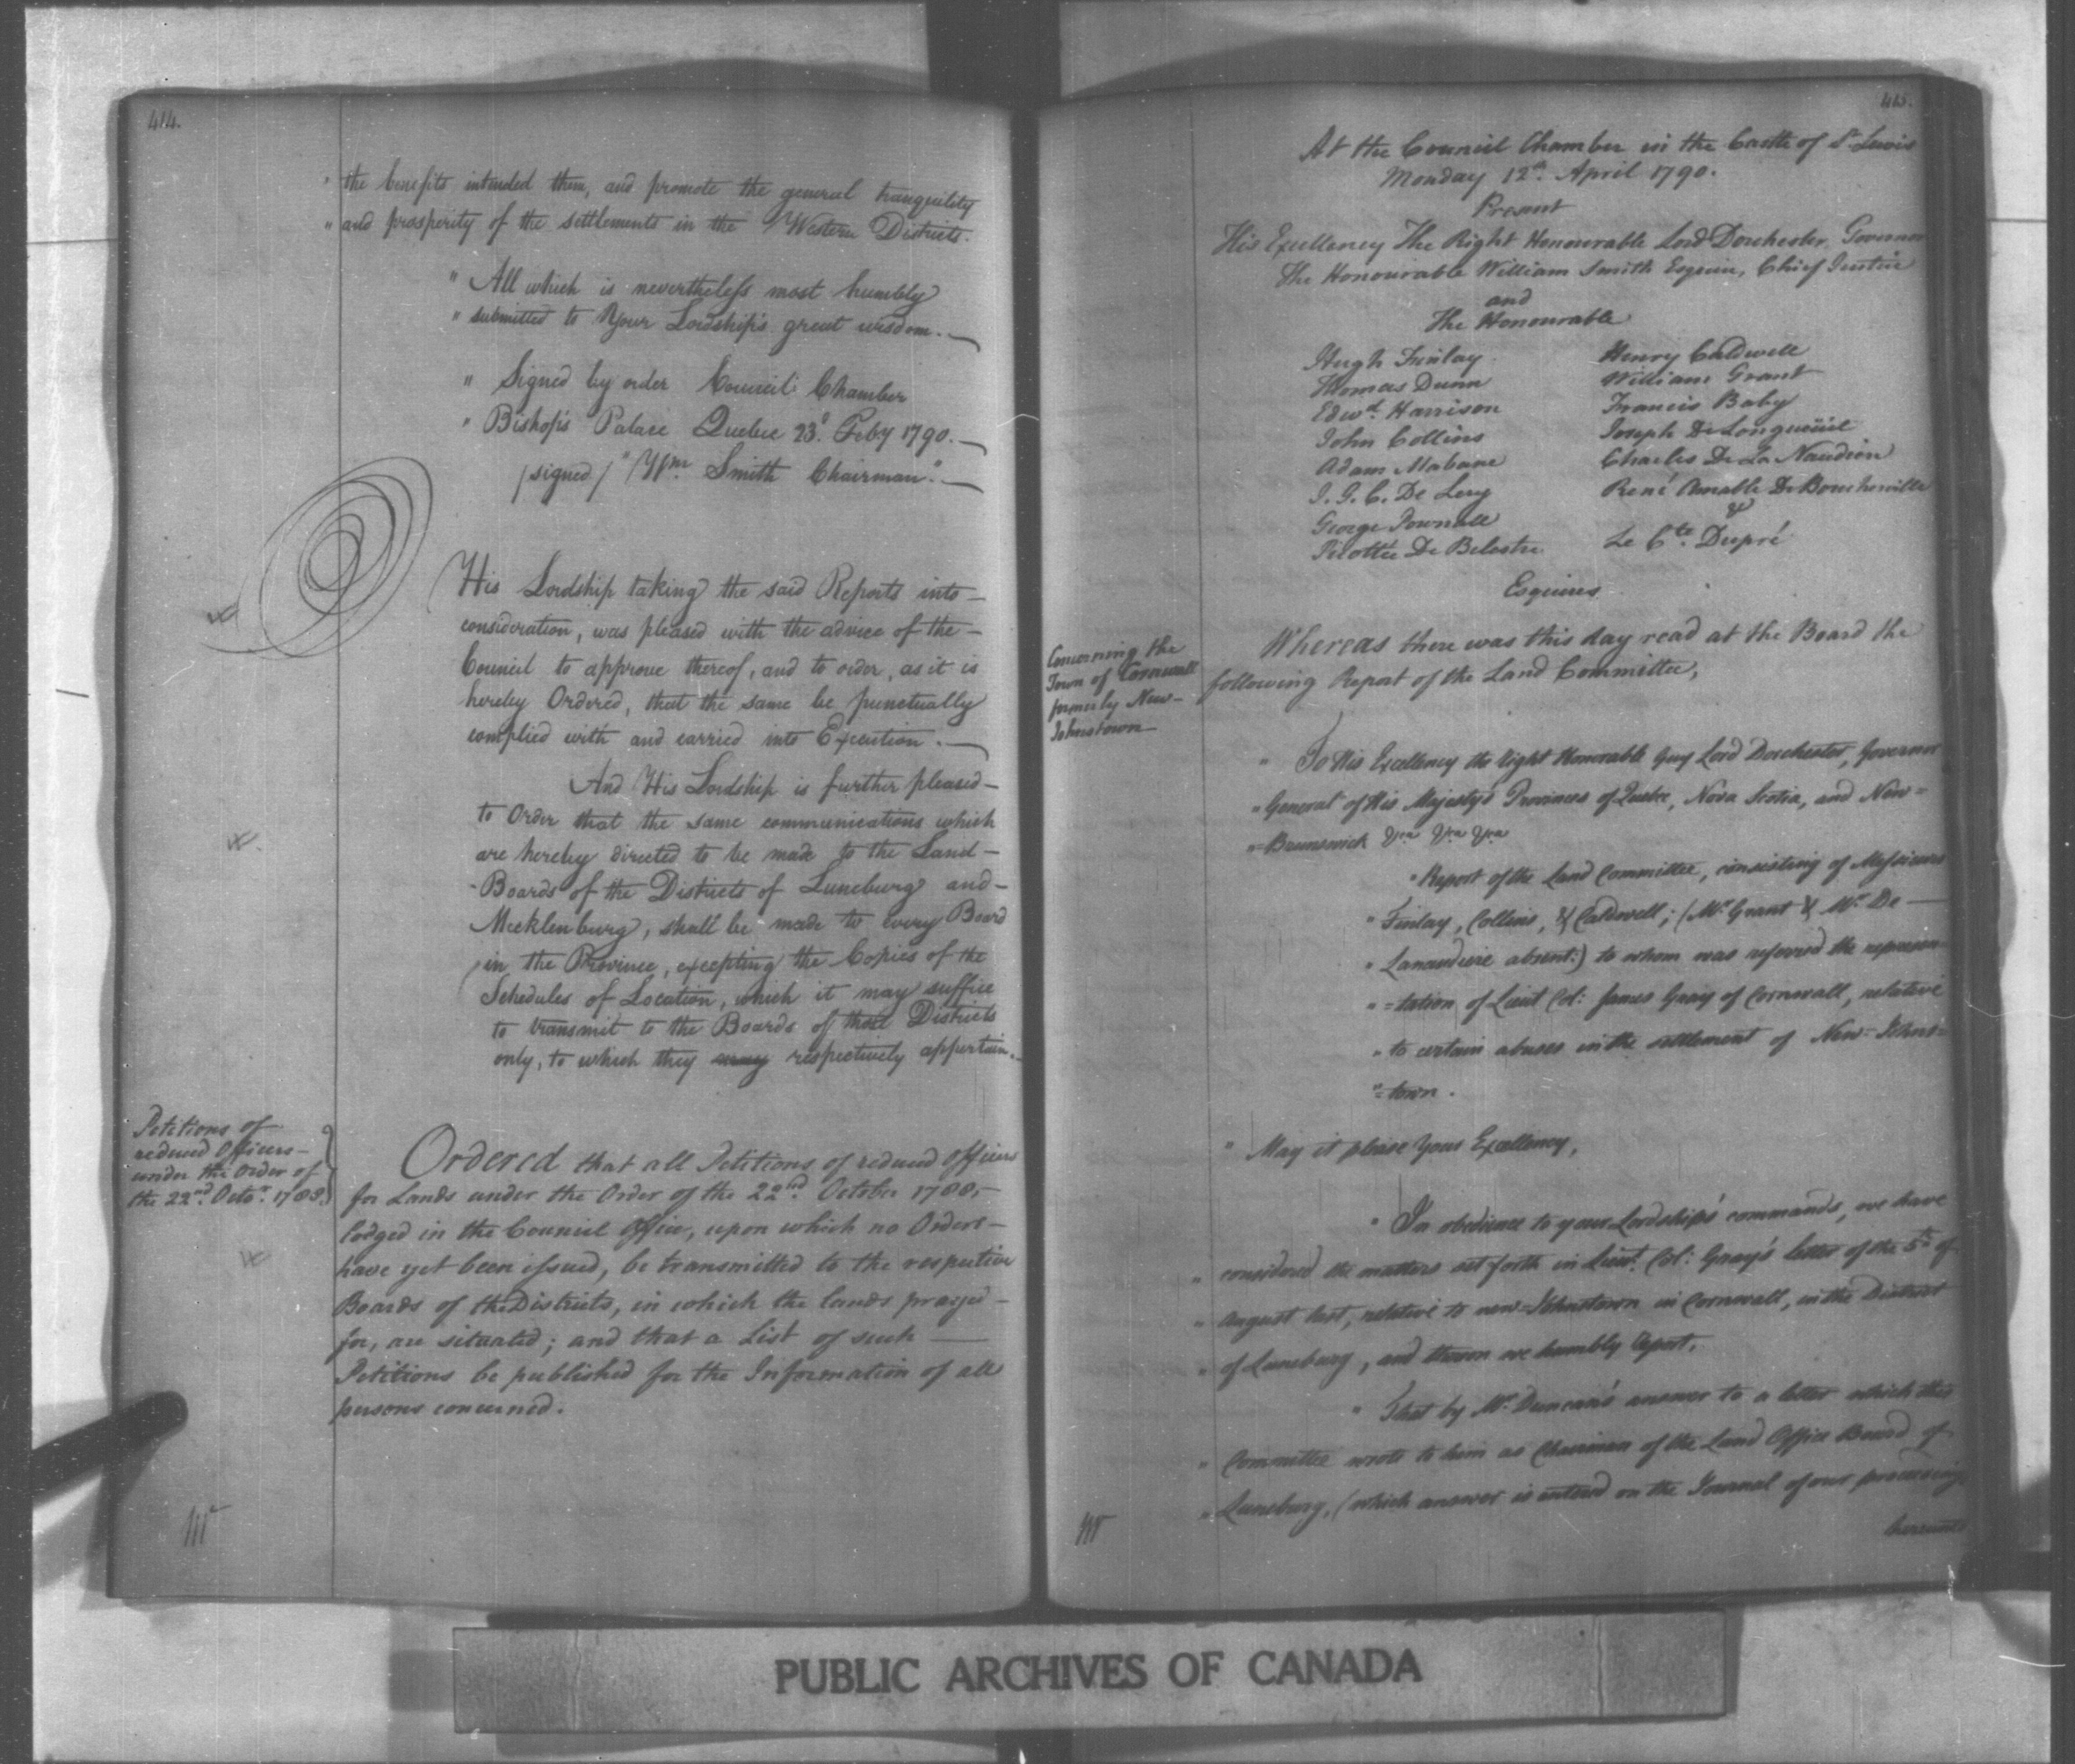 414.
" the benefits intended them, and promote the general tranquility
" and prosperity of the settlements in the Western Districts.
" All which is nevertheless most humbly
" submitted to Your Lordship's great wisdom. —
" Signed by order Council Chamber
" Bishop's Palace Quebec 23d. Feby 1790. —
/signed/ " Wm. Smith Chairman". —
His Lordship taking the said Reports into —
consideration, was pleased with the advice of the —
Council to approve thereof, and to order, as it is
hereby Ordered, that the same be punctually
complied with and carried into Execution. —
And His Lordship is further pleased —
to Order that the same communications which
are hereby directed to be made to the Land —
- Boards of the Districts of Luneburg and —
Mecklenburg, shall be made to every Board
in the Province, excepting the Copies of the
Schedules of Location, which it may suffice
to transmit to the Boards of those Districts
only, to which they may respectively appertain. —
Petitions of
reduced Officers —
under the Order of
the 22nd. Octor. 1788.
Ordered that all Petitions of reduced officers
for Lands under the Order of the 22nd. October 1788, —
lodged in the Council Office, upon which no Orders —
have yet been issued, be transmitted to the respective
Boards of the Districts, in which the lands prayed —
for, are situated; and that a List of such —
Petitions be published for the Information of all
persons concerned.
415.
At the Council Chamber in the Castle of St. Lewis
Monday 12th. April 1790.
Present
His Excellency The Right Honourable Lord Dorchester Governor
The Honourable William Smith Esquire, Chief Justice
and
The Honourable
Hugh Finlay
Thomas Dunn
Edwd. Harrison
John Collins
Adam Mabane
J. G. C. De Lery
George Pownall
Picotté De Belestre
Henry Caldwell
William Grant
Francis Baby
Joseph De Longueüil
Charles De La Naudiere
René Amable De Boucherville
&
Le Cte. Dupré
Esquires
Concerning the
Town of Cornwall
formerly New —
Johnstown —
Whereas there was this day read at the Board the
following Report of the Land Committee,
" To His Excellency the Right Honorable Guy Lord Dorchester, Governor
" General of His Majesty's Provinces of Quebec, Nova Scotia, and New =
" = Brunswick &ca &ca &ca
" Report of the Land Committee, consisting of Messieurs
" Finlay, Collins, & Caldwell; (Mr. Grant & Mr. De —
" Lanaudiere absent:) to whom was referred the represen=
" = tation of Lieut Col: James Gray of Cornwall, relative
" to certain abuses in the settlement of New = Johns=
" = town.
" May it please Your Excellency,
" In obedience to your Lordship's commands, we have
" considered the matters set forth in Lieut. Col: Gray's letter of the 5th of
" August last, relative to new = Johnstown in Cornwall, in the District
" of Luneburg, and thereon we humbly Report,
" That by Mr. Duncan's answer to a letter which this
" Committee wrote to him as Chairman of the Land Office Board of
" Luneburg, (which answer is entered on the Journal of our proceedings
hereunto
PUBLIC ARCHIVES OF CANADA